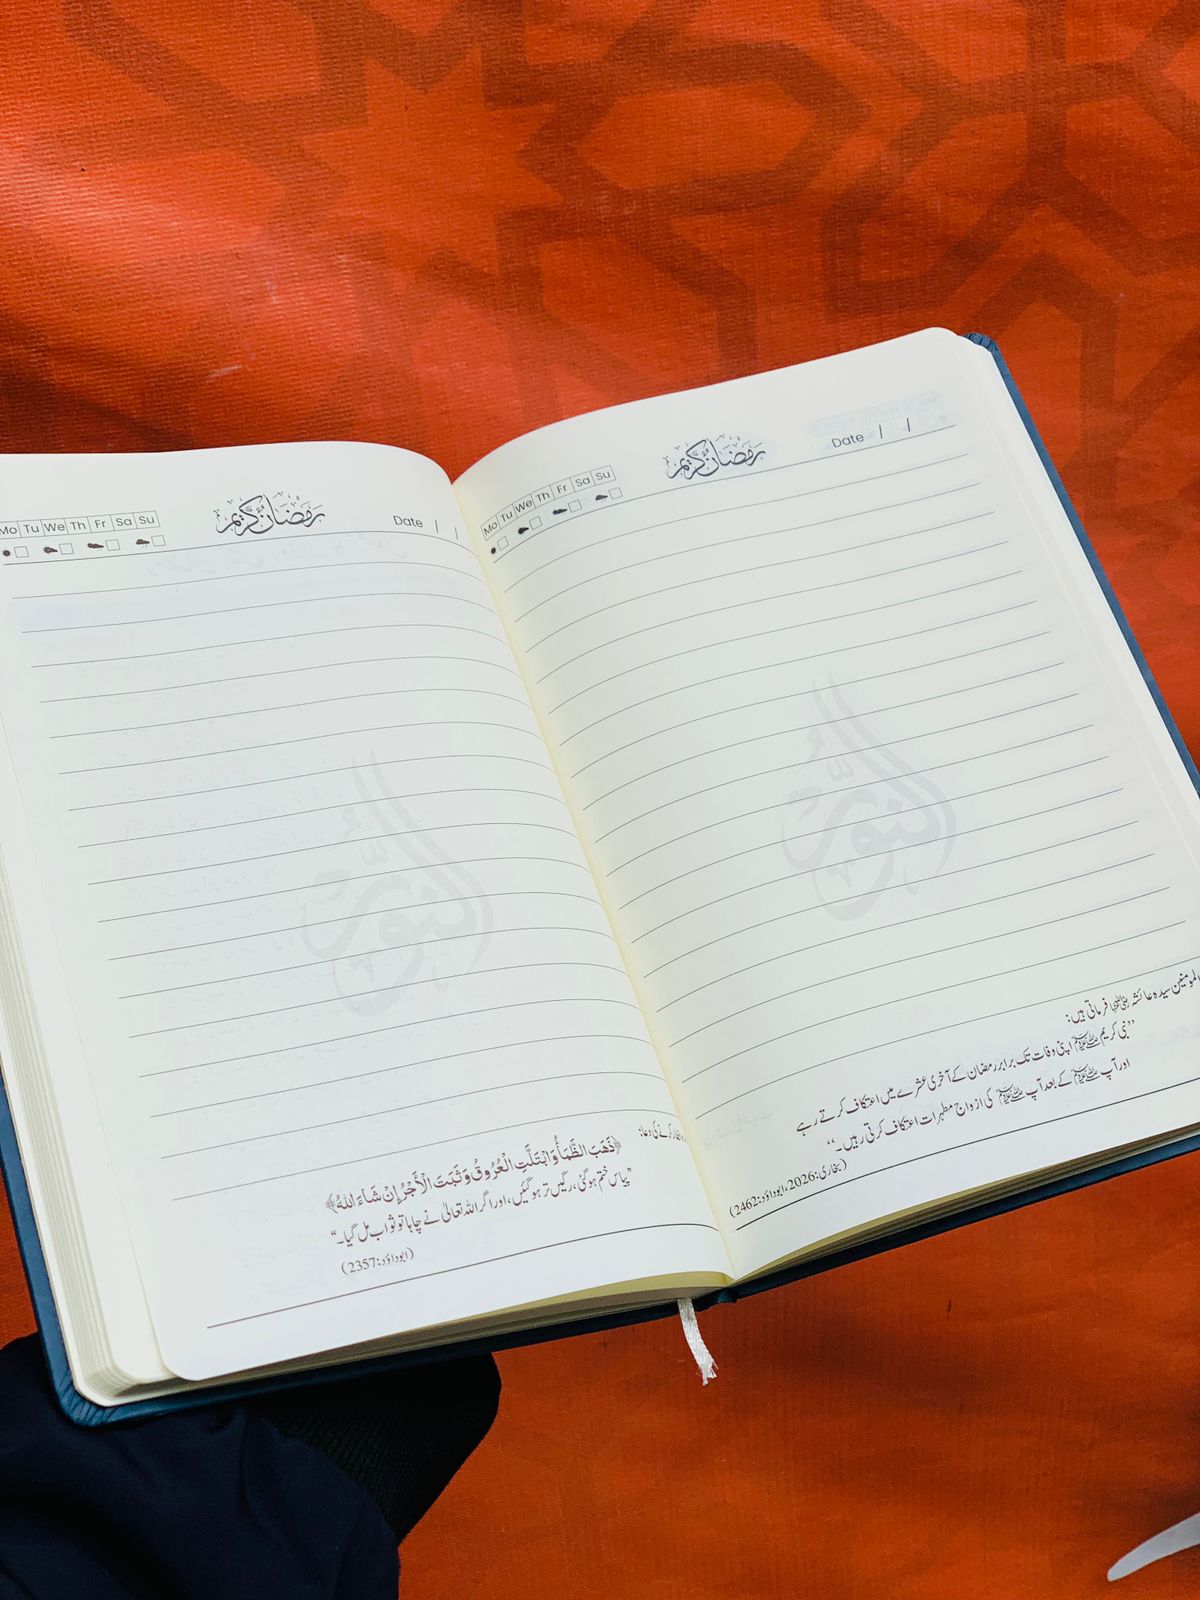 Mo Tu We Th Fr Sa Su
رمضان كريم
Date | |
کرنے کی دعا:
﴿ذَهَبَ الظَّمَأُ وَابْتَلَّتِ الْعُرُوقُ وَثَبَتَ الْأَجْرُ إِنْ شَاءَ اللهُ﴾
"پیاس ختم ہوگئی، رگیں تر ہوگئیں، اور اگر اللہ تعالیٰ نے چاہا تو ثواب مل گیا۔"
(ابوداؤد:2357)
Mo Tu We Th Fr Sa Su
رمضان كريم
Date | |
المومنین سیدہ عائشہ رضی اللہ عنہا فرماتی ہیں:
"نبی کریم ﷺ اپنی وفات تک برابر رمضان کے آخری عشرے میں اعتکاف کرتے رہے
اور آپ ﷺ کے بعد آپ ﷺ کی ازواج مطہرات اعتکاف کرتی رہیں۔"
(بخاری:2026، ابوداؤد:2462)
النور
النور